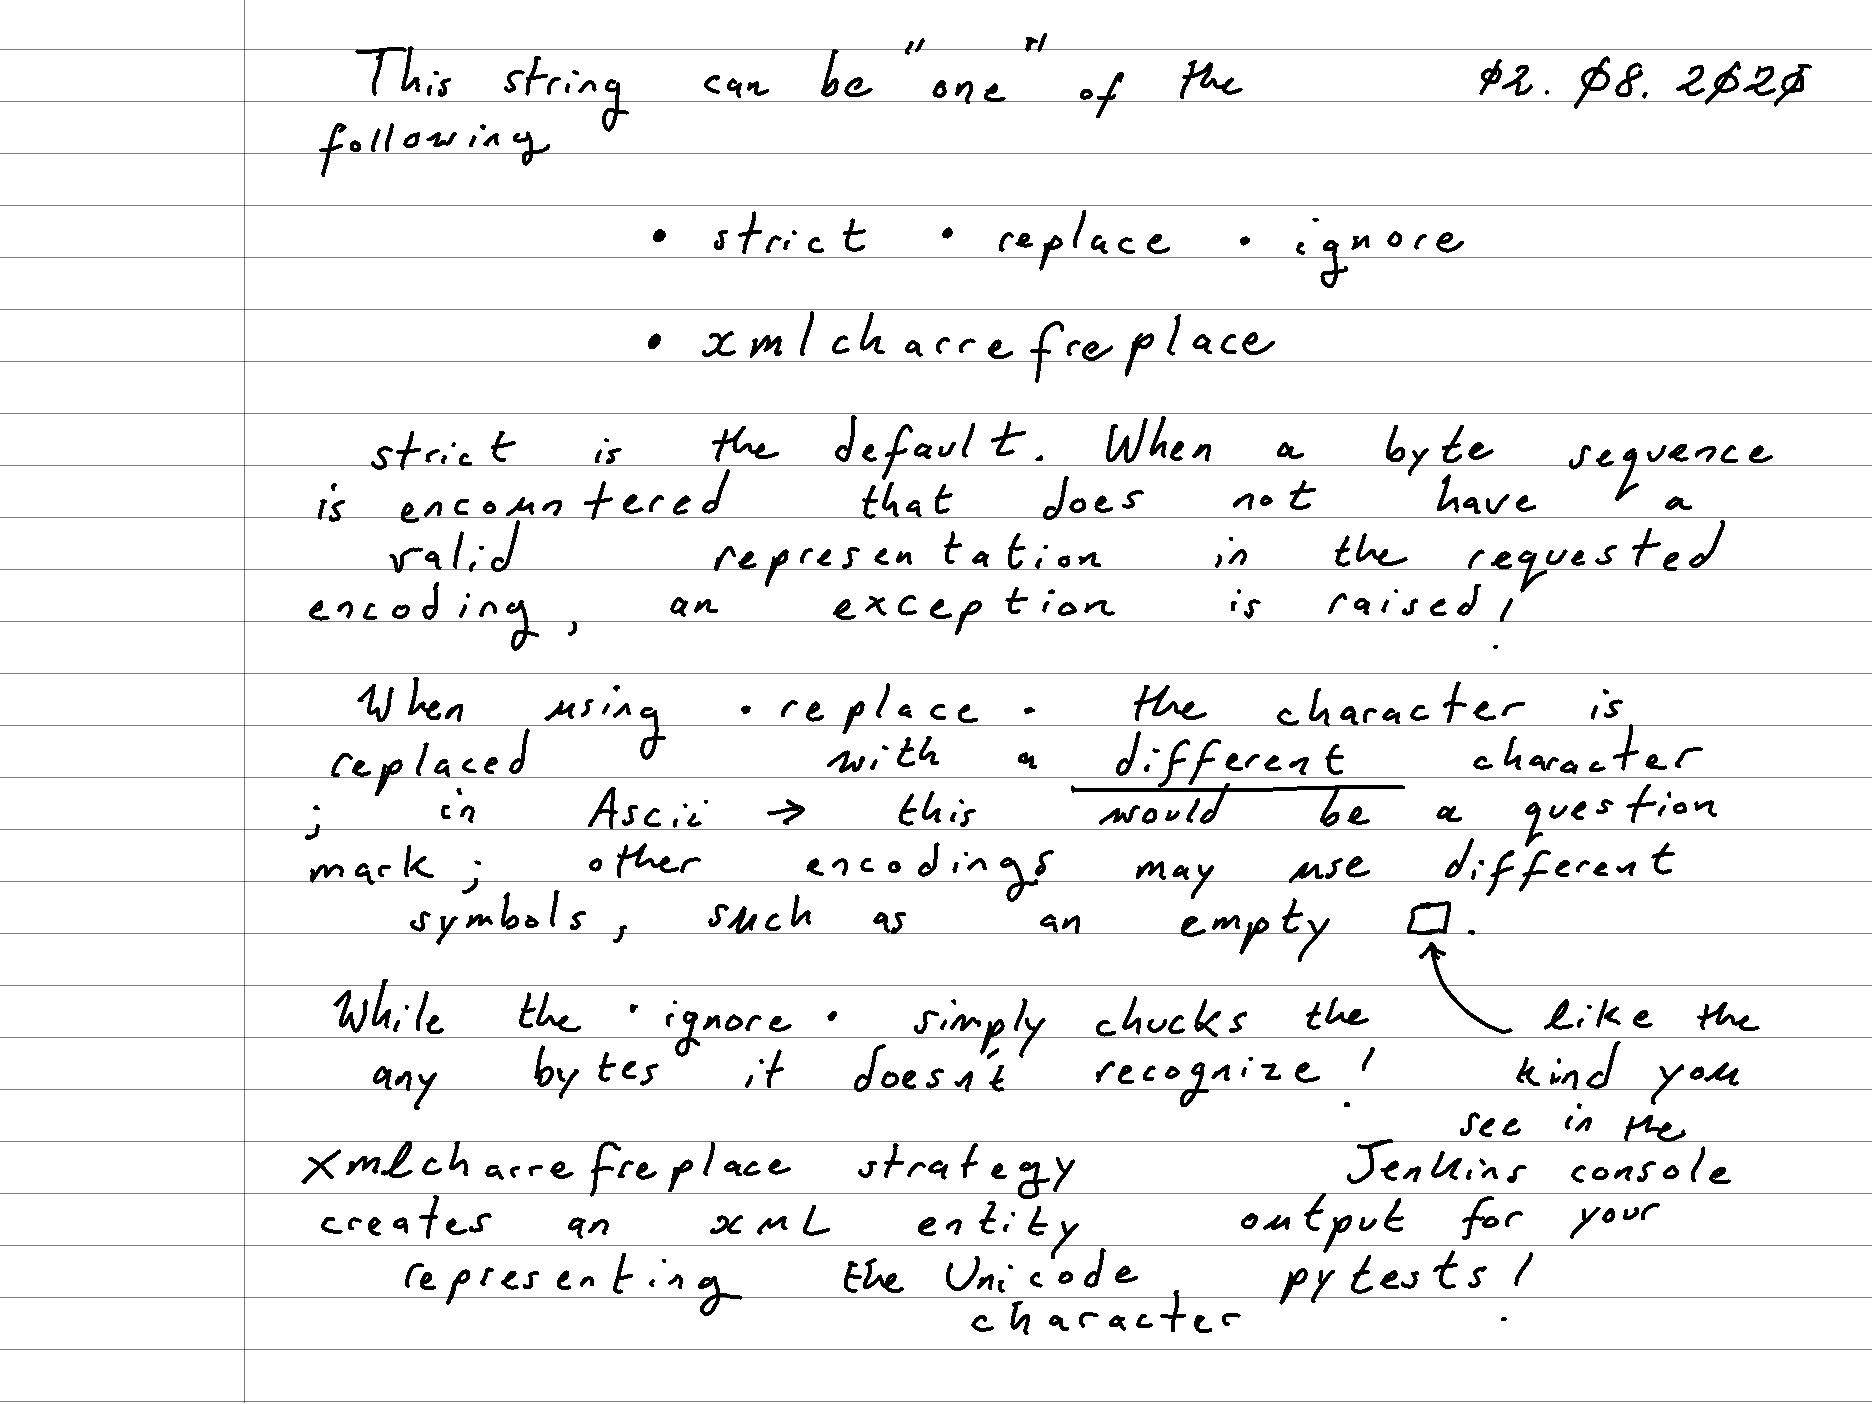 This string can be "one" of the 02.08.2020
following
• strict • replace • ignore
• xmlcharrefreplace
strict is the default. When a byte sequence
is encountered that does not have a
valid representation in the requested
encoding, an exception is raised!
When using • replace • the character is
replaced with a different character
; in Ascii → this would be a question
mark; other encodings may use different
symbols, such as an empty □.
While the • ignore • simply chucks the
any bytes it doesn't recognize!
like the
kind you
see in the
Jenkins console
output for your
pytests!
xmlcharrefreplace strategy
creates an xmL entity
representing the Unicode
character